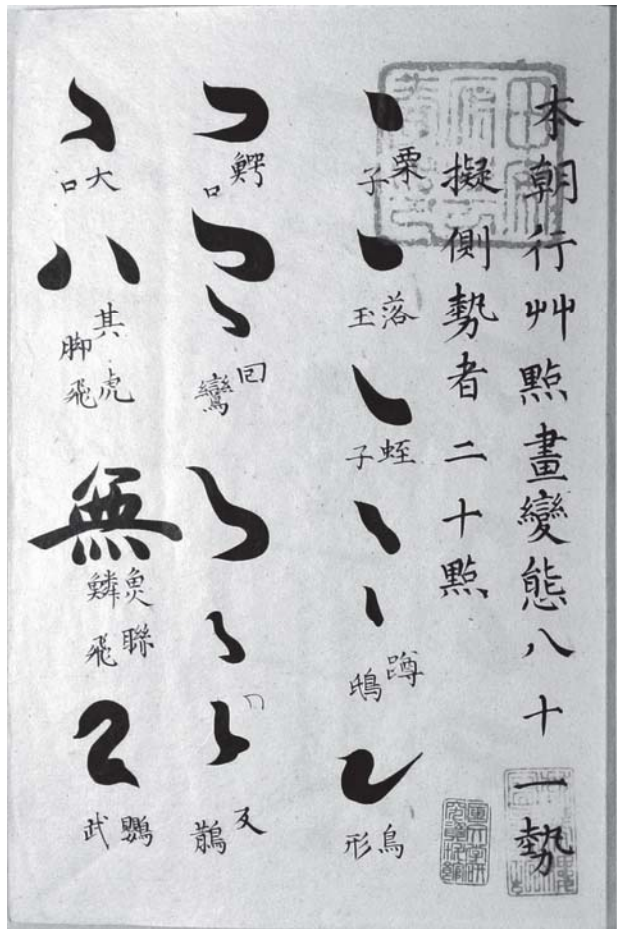 本朝行艸點畫變態八十一勢
擬側勢者二十點
栗子
落玉
蛭子
蹲鴟
鳥形
鰐口
回鸞
大口
其脚
虎飛
無
魚鱗
聯飛
鸚武